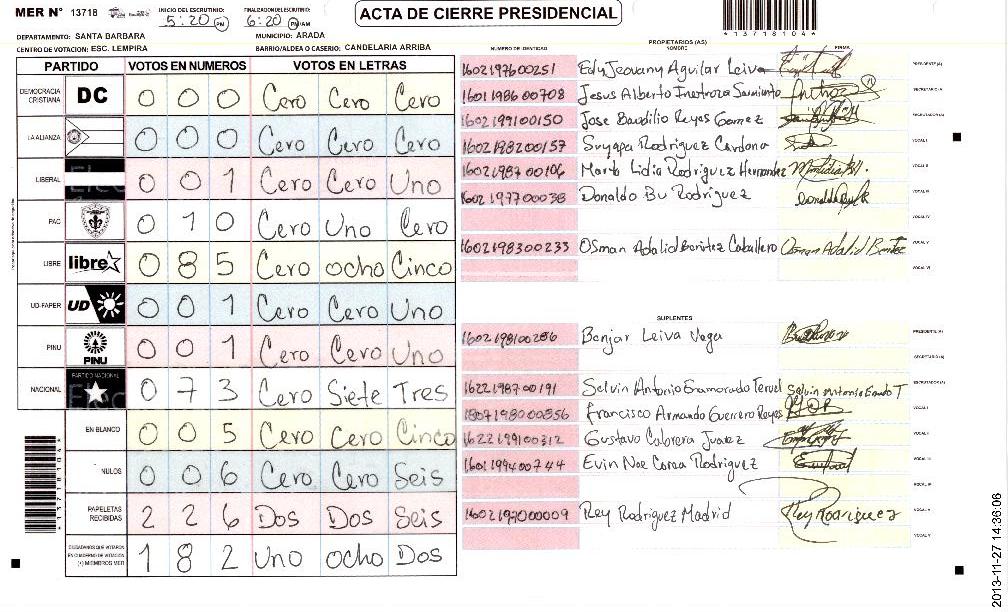 MER Nº 13718
INICIO DEL ESCRUTINIO: 5:20 PM
FINALIZACION DEL ESCRUTINIO: 6:20 PM/AM
ACTA DE CIERRE PRESIDENCIAL
*13718104*
DEPARTAMENTO: SANTA BARBARA
MUNICIPIO: ARADA
CENTRO DE VOTACION: ESC. LEMPIRA
BARRIO/ALDEA O CASERIO: CANDELARIA ARRIBA
PARTIDO VOTOS EN NUMEROS VOTOS EN LETRAS
DEMOCRACIA CRISTIANA DC 0 0 0 Cero Cero Cero
LA ALIANZA 0 0 0 Cero Cero Cero
LIBERAL 0 0 1 Cero Cero Uno
PAC 0 1 0 Cero Uno Cero
LIBRE libre 0 8 5 Cero ocho Cinco
UD-FAPER UD 0 0 1 Cero Cero Uno
PINU PINU 0 0 1 Cero Cero Uno
NACIONAL PARTIDO NACIONAL 0 7 3 Cero Siete Tres
EN BLANCO 0 0 5 Cero Cero Cinco
NULOS 0 0 6 Cero Cero Seis
PAPELETAS RECIBIDAS 2 2 6 Dos Dos Seis
CIUDADANOS QUE VOTARON EN CUADERNO DE VOTACION (+) MIEMBROS MER 1 8 2 Uno ocho Dos
*13718104*
PROPIETARIOS (AS)
NUMERO DE IDENTIDAD NOMBRE FIRMA
1602197600251 Edu Jeovany Aguilar Leiva PRESIDENTE (A)
1601198600708 Jesus Alberto Inestroza Sarmiento SECRETARIO/A
1602199100150 Jose Baudilio Reyes Gomez ESCRUTADOR (A)
1602198200157 Suyapa Rodriguez Cardona VOCAL I
1602198700106 Marta Lidia Rodriguez Hernandez VOCAL II
1602197700038 Donaldo Bu Rodriguez VOCAL III
VOCAL IV
1602198300233 Osman Adalid Benitez Caballero Osman Adalid Benitez VOCAL V
VOCAL VI
SUPLENTES
1602198100286 Benjar Leiva Vega PRESIDENTE (A)
SECRETARIO (A)
1622198700191 Selvin Antonio Enamorado Teruel ESCRUTADOR (A)
1807198000856 Francisco Armando Guerrero Reyes VOCAL I
1622199100312 Gustavo Cabrera Juarez VOCAL II
1601199400744 Evin Noe Corea Rodriguez VOCAL III
VOCAL IV
1602197000009 Rey Rodriguez Madrid Rey Rodriguez VOCAL V
VOCAL VI
2013-11-27 14:36:06